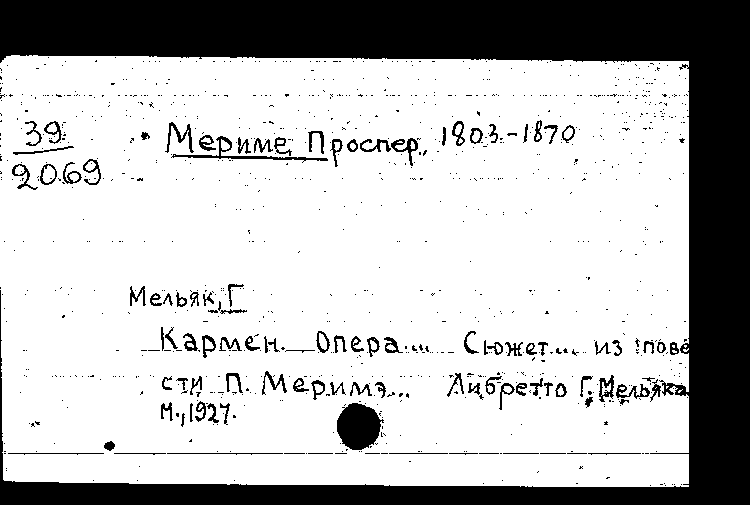 39
2069
Мериме, Проспер, 1803-1870
Мельяк, Г
Кармен. Опера... Сюжет... из пове
сти П. Меримэ... Либретто Г. Мельяка
М., 1927.